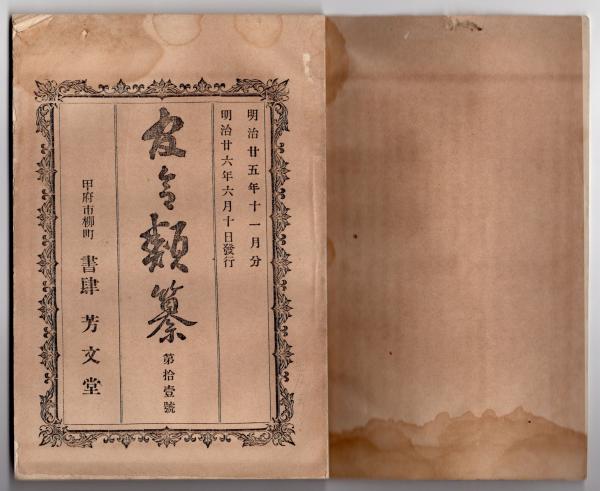 明治廿五年十一月分
明治廿六年六月十日發行
官令類纂 第拾壹號
甲府市柳町 書肆 芳文堂